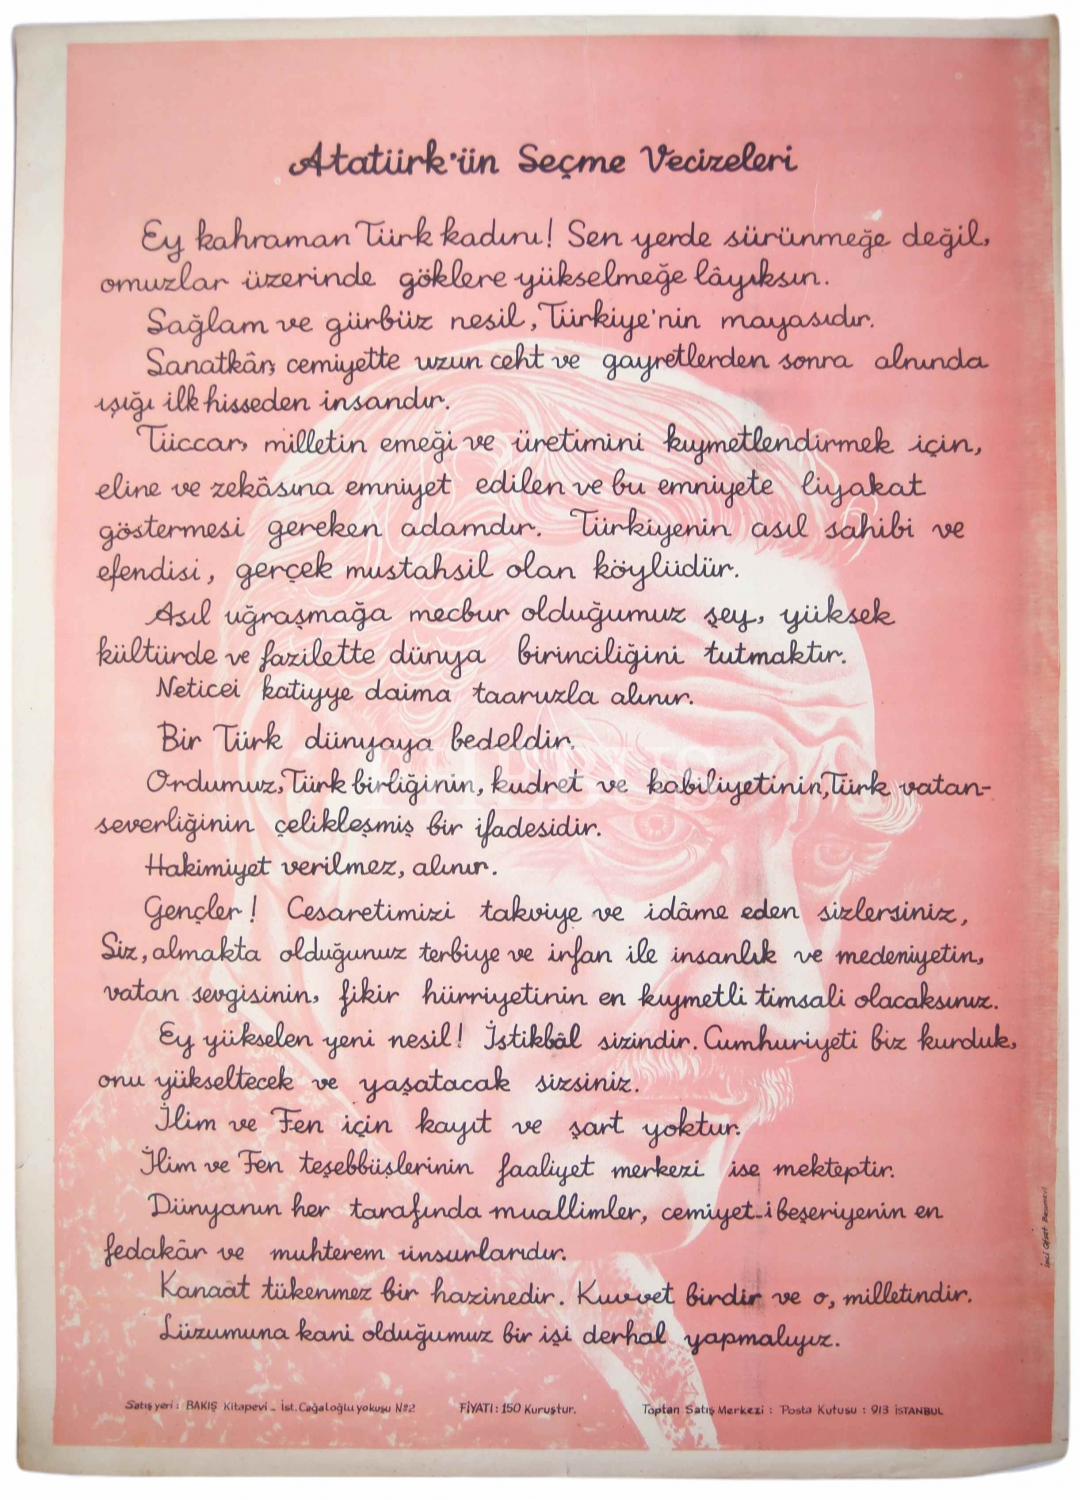 Atatürk'ün Seçme Vecizeleri
Ey kahraman Türk kadını! Sen yerde sürünmeğe değil,
omuzlar üzerinde göklere yükselmeğe lâyıksın.
Sağlam ve gürbüz nesil, Türkiye'nin mayasıdır.
Sanatkâr, cemiyette uzun ceht ve gayretlerden sonra alnında
ışığı ilk hisseden insandır.
Tüccar, milletin emeği ve üretimini kıymetlendirmek için,
eline ve zekâsına emniyet edilen ve bu emniyete liyakat
göstermesi gereken adamdır. Türkiyenin asıl sahibi ve
efendisi, gerçek mustahsil olan köylüdür.
Asıl uğraşmağa mecbur olduğumuz şey, yüksek
kültürde ve fazilette dünya birinciliğini tutmaktır.
Neticei katiyye daima taaruzla alınır.
Bir Türk dünyaya bedeldir.
Ordumuz, Türk birliğinin, kudret ve kabiliyetinin, Türk vatan-
severliğinin çelikleşmiş bir ifadesidir.
Hakimiyet verilmez, alınır.
Gençler! Cesaretimizi takviye ve idâme eden sizlersiniz,
Siz, almakta olduğunuz terbiye ve irfan ile insanlık ve medeniyetin,
vatan sevgisinin, fikir hürriyetinin en kıymetli timsali olacaksınız.
Ey yükselen yeni nesil! İstikbâl sizindir. Cumhuriyeti biz kurduk,
onu yükseltecek ve yaşatacak sizsiniz.
İlim ve Fen için kayıt ve şart yoktur.
İlim ve Fen teşebbüslerinin faaliyet merkezi ise mekteptir.
Dünyanın her tarafında muallimler, cemiyet-i beşeriyenin en
fedakâr ve muhterem unsurlarıdır.
Kanaât tükenmez bir hazinedir. Kuvvet birdir ve o, milletindir.
Lüzumuna kani olduğumuz bir işi derhal yapmalıyız.
Satış yeri: BAKIŞ Kitapevi - İst. Cağaloğlu yokuşu No:2 FİYATI: 150 Kuruştur. Toptan Satış Merkezi: Posta Kutusu: 913 İSTANBUL
İnci Ofset Basımevi